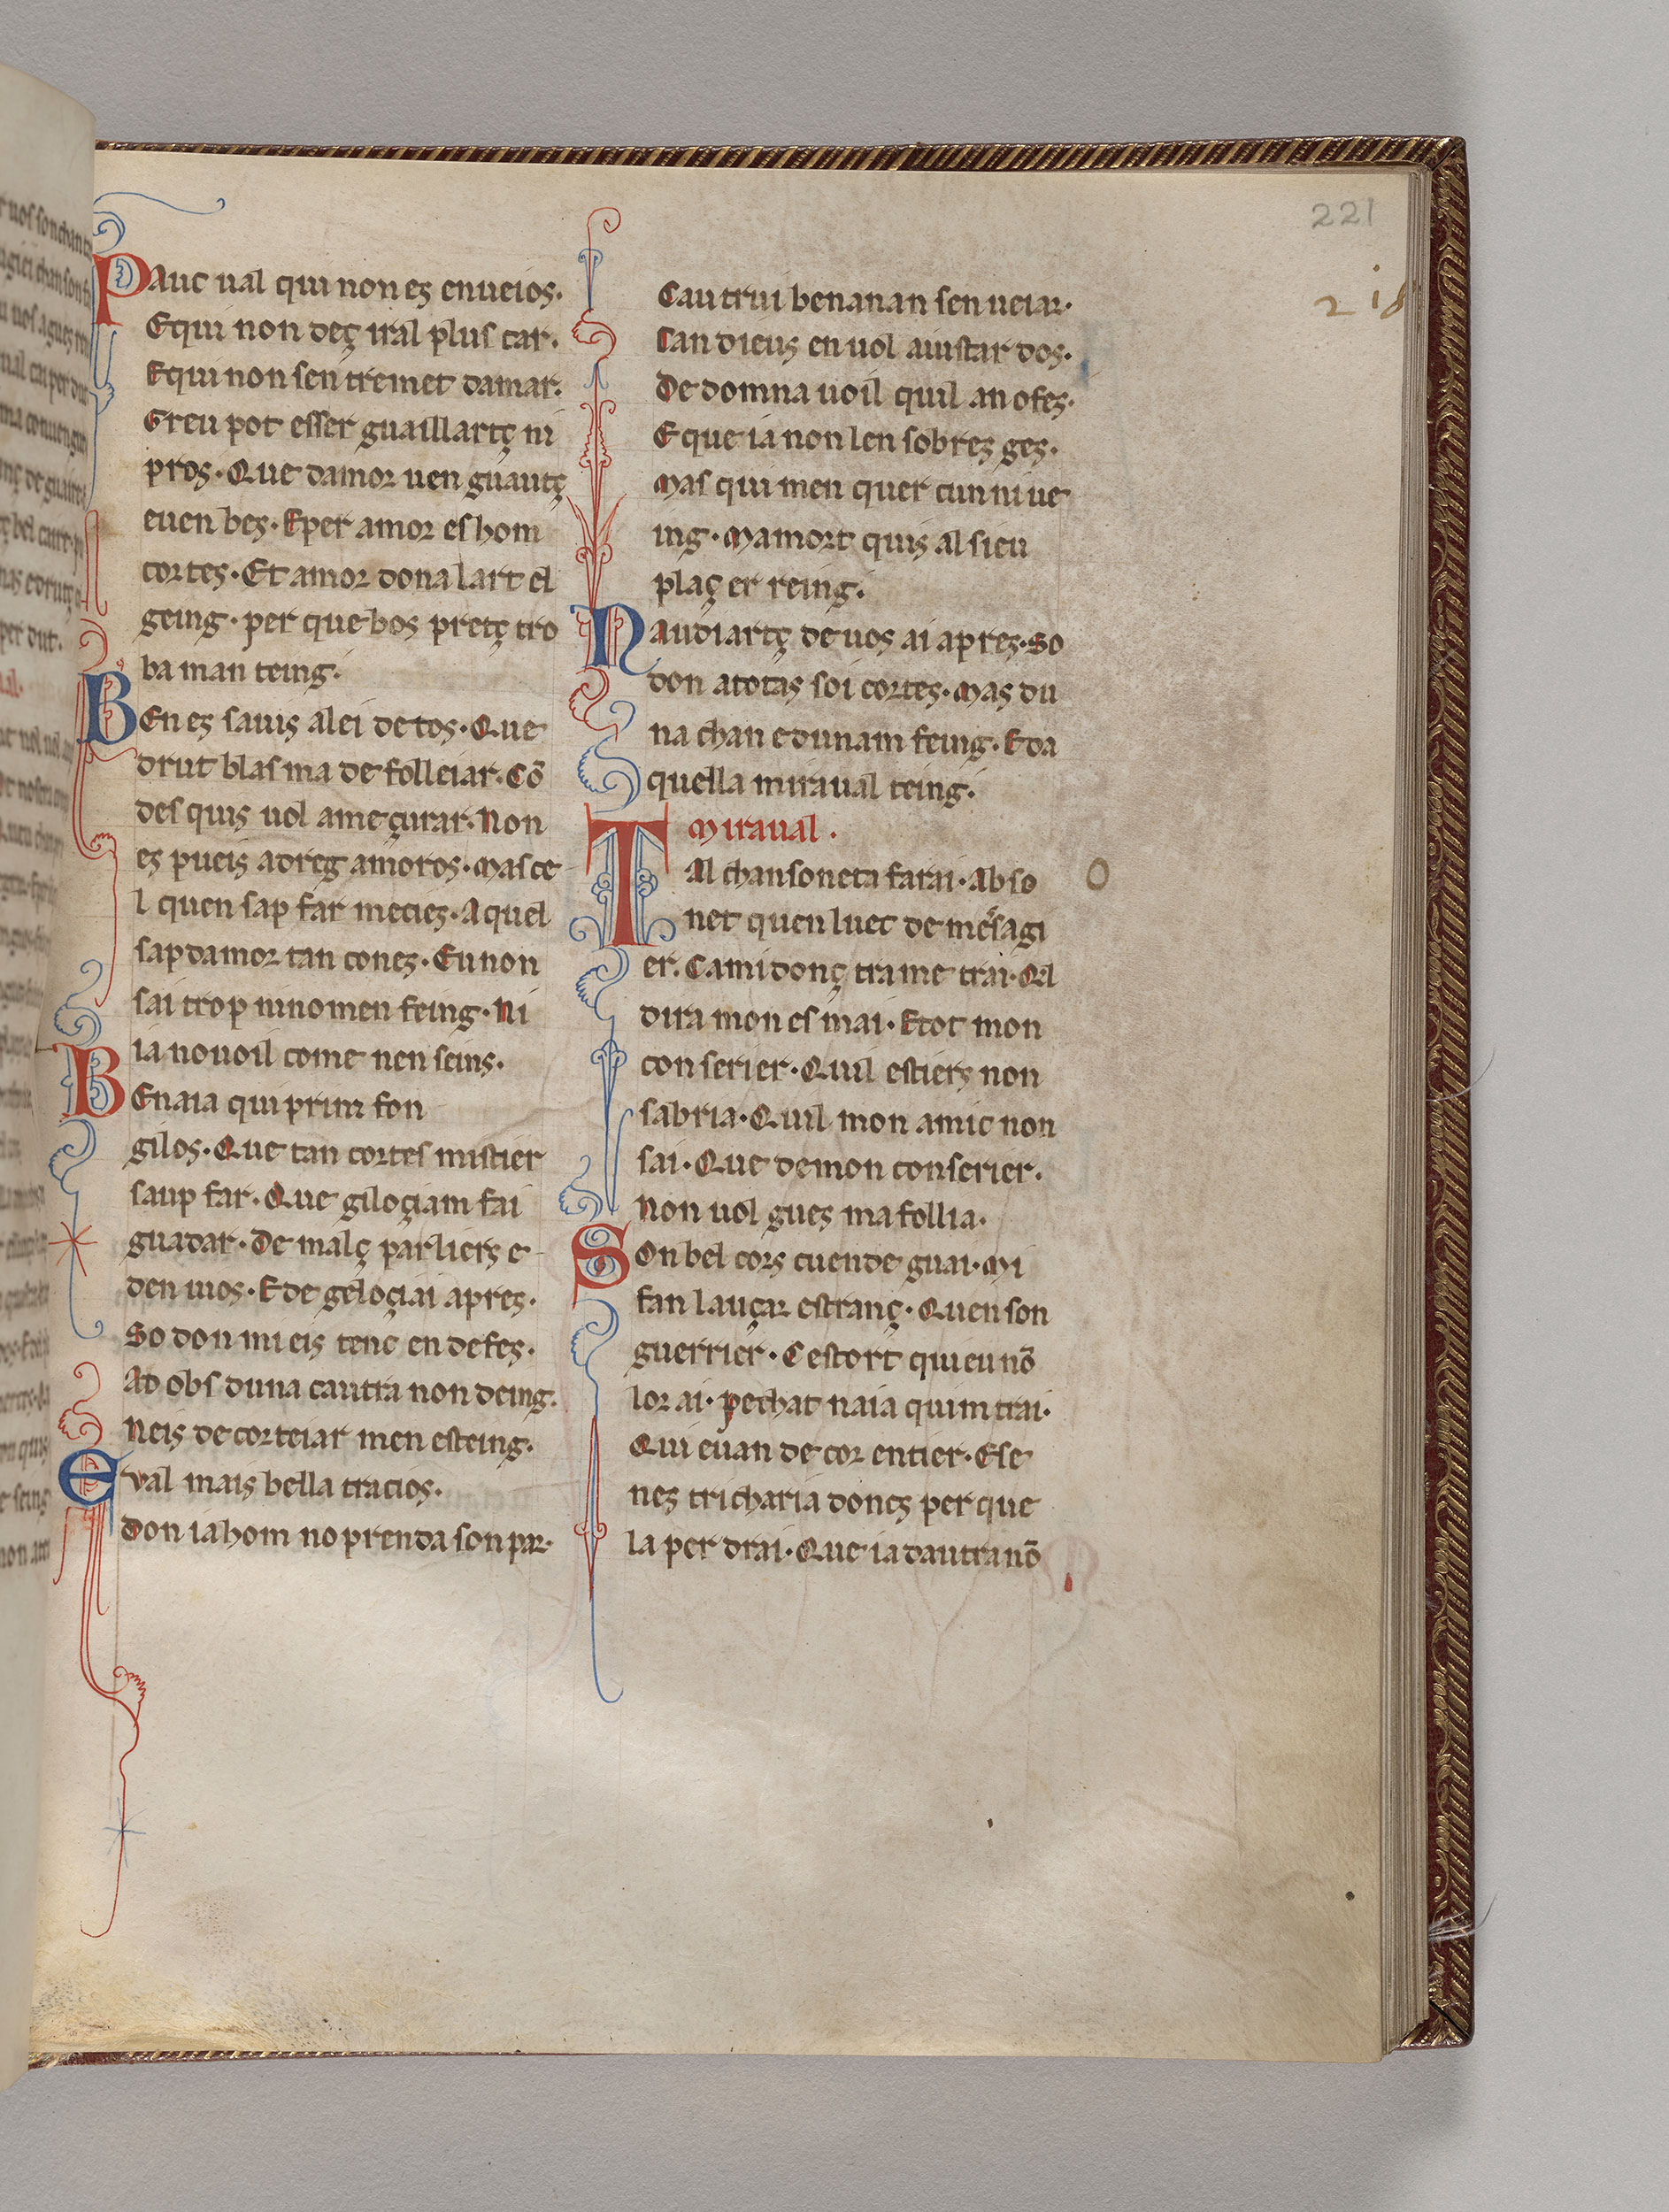 221
218
Pauc ual qui non es enueios.
E qui non deç iral plus car.
E qui non sen tremet damar.
Greu pot esser guaillartç ni
pros. Que damor uen guautç
euen bes. Eper amor es hom
cortes. Et amor dona lart el
geing. per que bos pretç tro
ba man teing.
Ben es sauis alei de tos. Que
drut blas ma de folleiar. Cõ
des quis uol ameçurar. Non
es pueis adreg amoros. Mas ce
l quen sap far mecies. Aquel
sap damor tan cones. Eu non
sai trop nino men feing. Ni
ia no uoil come nen seins.
Ben aia qui prim fon
gilos. Que tan cortes mistier
saup far. Que giloçiam fai
guadar. De malç parliers e
den uios. Ede geloçiai apres.
So don mi eis tenc en defes.
Ad obs duna cautra non deing.
Neis de corteiar men esteing.
E val mais bella tracios.
Don ia hom no prenda son par.
Cautrui benanan sen ueiar.
Can dieus en uol aiustar dos.
De domna uoil quil an ofes.
E que ia non len sobres ges.
Mas qui men quer cunniue
ing. Mamort quis al sieu
plaç er reing.
Naudiartç de uos ai apres. So
don atotas soi cortes. Mas du
na chan edunam feing. Eda
quella miraual teing.
Miraual.
Tal chansoneta farai. Ab so
net quen luec de mesagi
er. Camidonç trame trai. Qil
dira mon es mai. Etot mon
conserier. Quil estiers non
sabria. Quil mon amic non
sai. Que demon conserier.
Non uol gues ma follia.
Son bel cors cuende guai. Mi
fan lauçar estranç. Quen son
guerrier. Cestort quieu nõ
lor ai. pechat naia quim trai.
Qui euan de cor entier. Ese
nes tricharia doncs per que
la per drai. Que ia dautra nõ